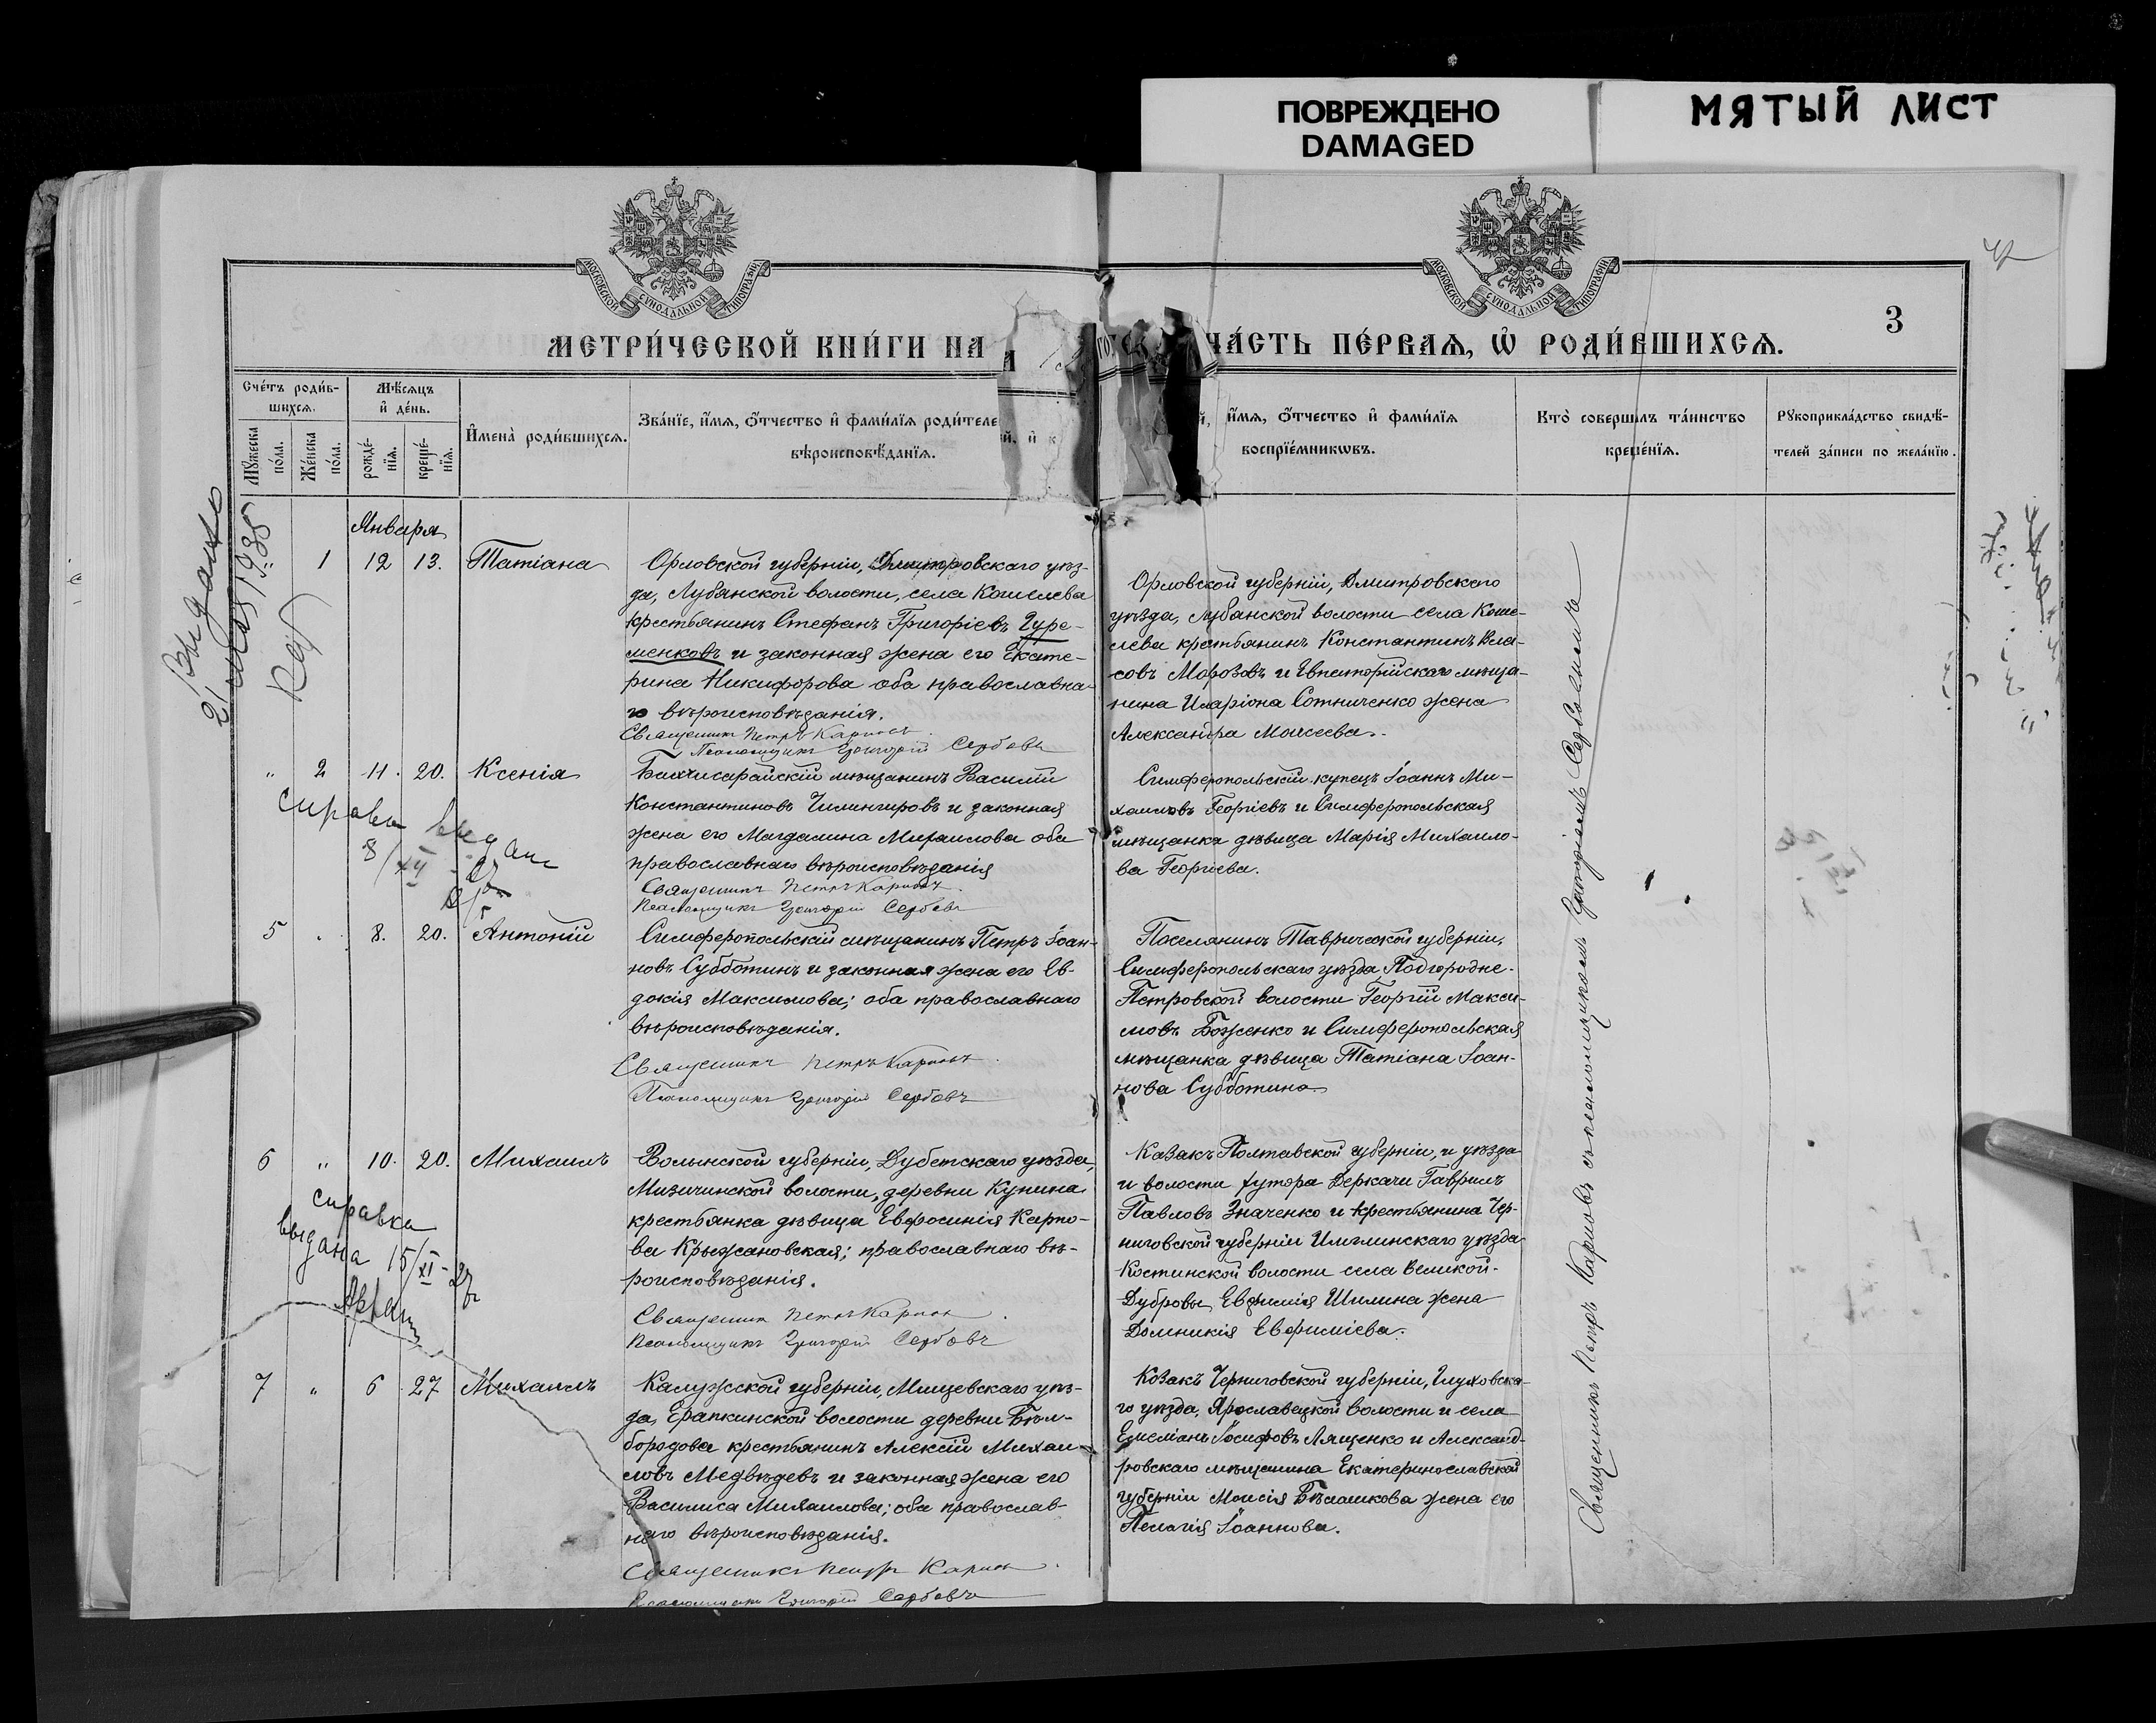 ПОВРЕЖДЕНО
DAMAGED
МЯТЫЙ ЛИСТ
МОСКОВСКОЙ СѴНОДАЛЬНОЙ ТИПОГРАФІИ
МОСКОВСКОЙ СѴНОДАЛЬНОЙ ТИПОГРАФІИ
3
МЕТРИ́ЧЕСКОЙ КНИ́ГИ НА
ЧА́СТЬ ПЕ́РВАЯ, Ѡ҆ РОДИ́ВШИХСЯ.
Сче́тъ роди́в-
шихся.
Мѣ́сяцъ
и҆ де́нь.
Мꙋ́жеска по́ла.
Же́нска по́ла.
рожде́-нїя.
креще́-нїя.
И҆мена̀ роди́вшихся.
Зва́нїе, и҆́мя, ѻ҆́тчество и҆ фами́лїя роди́теле
й, и҆ к
вѣроисповѣ́данїя.
й, и҆́мя, ѻ҆́тчество и҆ фами́лїя
воспрїе́мникѡвъ.
Кто̀ соверши́лъ та́инство
креще́нїя.
Рꙋкоприкла́дство свидѣ́-
телей за́писи по жела́нїю.
Января
1 12 13. Татіана
Орловской губерніи, Дмитровскаго уѣз-
да, Лубянской волости, села Кошелева
крестьянинъ Стефанъ Григоріевъ Гуре-
менковъ и законная жена его Екате-
рина Никифорова оба православна-
го вѣроисповѣданія.
Священникъ Петръ Карповъ
Псаломщикъ Григорій Сербовъ
Орловской губерніи, Дмитровскаго
уѣзда, Лубянской волости села Коше-
лева крестьянинъ Константинъ Вла-
совъ Морозовъ и Евпаторійскаго мѣща-
нина Иларіона Сотниченко жена
Александра Моисеева.
" 2 11. 20. Ксенія
Бахчисарайскій мѣщанинъ Василій
Константиновъ Чилингировъ и законная
жена его Магдалина Михаилова оба
православнаго вѣроисповѣданія
Священникъ Петръ Карповъ
Псаломщикъ Григорій Сербовъ
Симферопольскій купецъ Іоаннъ Ми-
хаиловъ Георгіевъ и Симферопольская
мѣщанка дѣвица Марія Михаило-
ва Георгіева.
5 " 8. 20. Антоній
Симферопольскій мѣщанинъ Петръ Іоан-
новъ Субботинъ и законная жена его Ев-
докія Максимова; оба православнаго
вѣроисповѣданія.
Священникъ Петръ Карповъ
Псаломщикъ Григорій Сербовъ
Поселянинъ Таврической губерніи,
Симферопольскаго уѣзда, Подгородне-
Петровской волости Георгій Макси-
мовъ Боженко и Симферопольская
мѣщанка дѣвица Татіана Іоан-
нова Субботина
6 " 10. 20. Михаилъ
Волынской губерніи, Дубенскаго уѣзда,
Мизичинской волости, деревни Кунина
крестьянка дѣвица Евфросинія Карпо-
ва Крыжановская; православнаго вѣ-
роисповѣданія.
Священникъ Петръ Карповъ
Псаломщикъ Григорій Сербовъ
Казакъ Полтавской губерніи, и уѣзда
и волости хутора Деркачи Гавріилъ
Павловъ Значенко и крестьянина Чер-
ниговской губерніи Имглинскаго уѣзда
Костинской волости села Великой-
Дубровы, Евфимія Шилина жена
Домникія Евфиміева.
7 " 6 27 Михаилъ
Калужской губерніи, Мищевскаго уѣз-
да, Ерапкинской волости деревни Бѣл-
бородова крестьянинъ Алексій Михаи-
ловъ Медвѣдевъ и законная жена его
Василиса Михаилова; оба православ-
наго вѣроисповѣданія.
Священникъ Петръ Карповъ
Псаломщикъ Григорій Сербовъ
Козакъ Черниговской губерніи, Глуховска-
го уѣзда, Ярославецкой волости и села
Емеліанъ Іосифовъ Лященко и Александ-
ровскаго мѣщанина Екатеринославской
губерніи Моисія Бѣлашкова жена его
Пелагія Іоаннова.
Священникъ Петръ Карповъ съ псаломщикомъ Григоріемъ Сербовымъ
Видано
21 мая 1938
справка выдана
8/XII
справка
выдана 15/XI-27